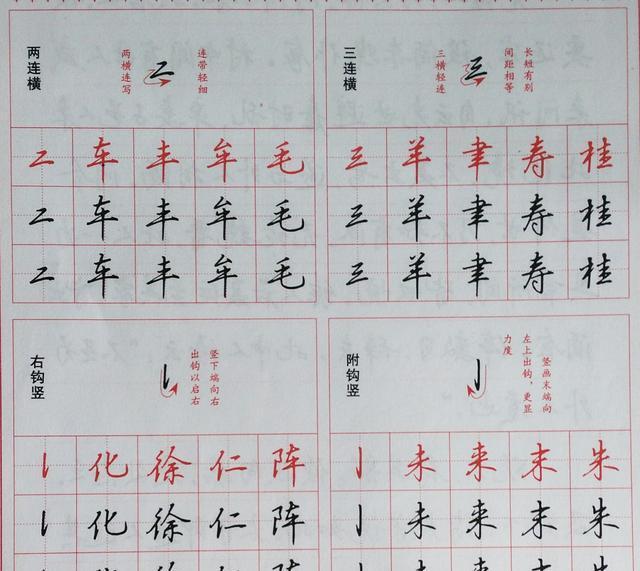 两连横
连带轻细
两横连写
二
二 车 丰 牟 毛
二 车 丰 牟 毛
二 车 丰 牟 毛
三连横
长短有别
间距相等
三横轻连
三
三 羊 聿 寿 桂
三 羊 聿 寿 桂
三 羊 聿 寿 桂
右钩竖
竖下端向右
出钩以启右
丨 化 徐 仁 阵
丨 化 徐 仁 阵
附钩竖
竖画末端向
左上出钩，更显
力度
丨 未 来 末 朱
丨 未 来 末 朱